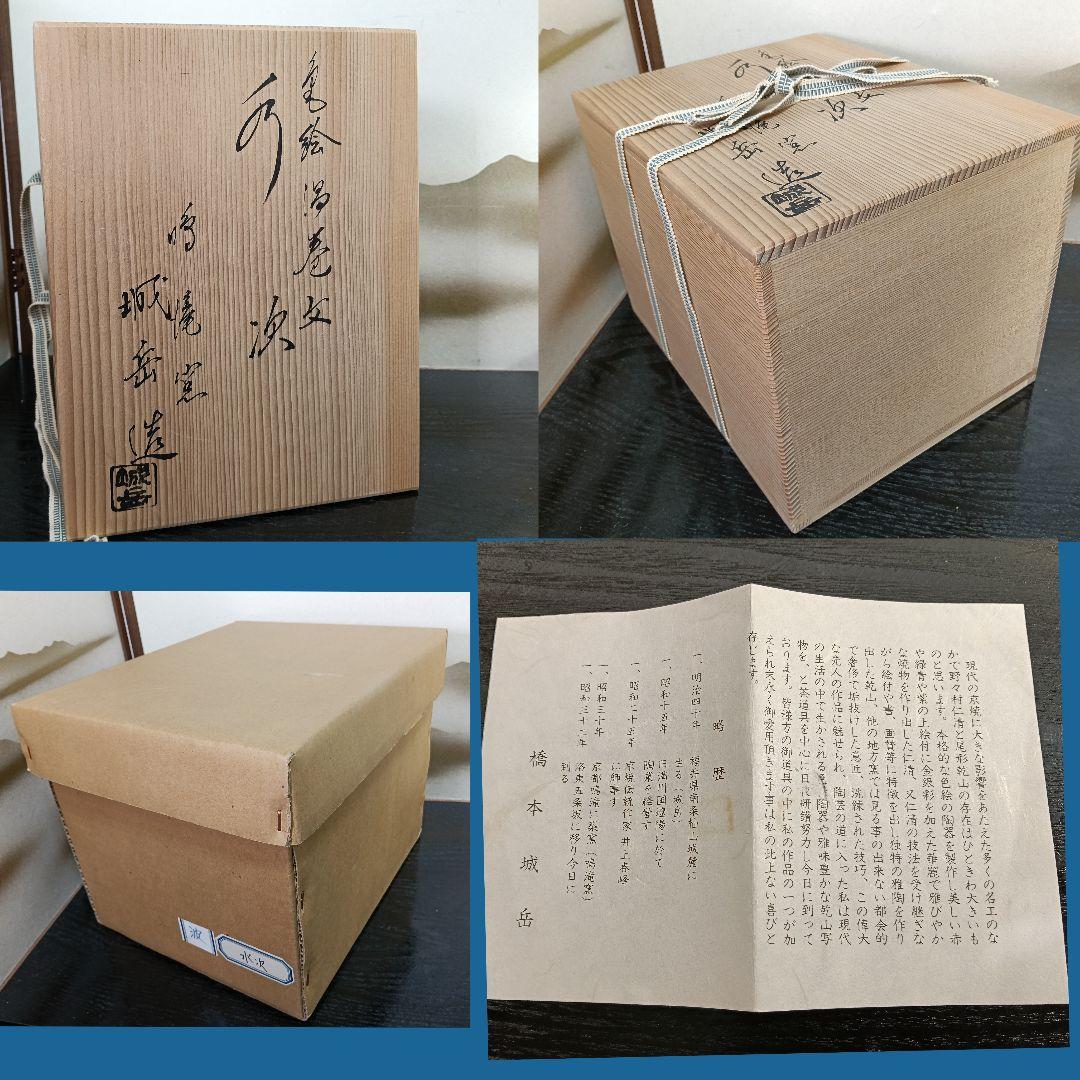 色絵渦巻文
水次
鳴滝窯
城岳造
城岳
窯
岳造
城岳
波
水次
現代の京焼に大きな影響をあたえた多くの名工のな
かで野々村仁清と尾形乾山の存在はひときわ大きいも
のと思います。本格的な色絵の陶器を製作し美しい赤
や緑青や紫の上絵付に金銀彩を加えた華麗で雅びやか
な焼物を作り出した仁清、又仁清の技法を受け継ぎな
がら絵付や書、画賛等に特徴を出し独特の雅陶を作り
出した乾山、他の地方窯では見る事の出来ない都会的
で奢侈で垢抜けした意匠、洗練された技巧、この偉大
な先人の作品に魅せられ、陶芸の道に入った私は現代
の生活の中で生かされる美しい陶器や雅味豊かな乾山写
物を、と茶道具を中心に日夜研鑽努力し今日に到って
おります。皆様方の御道具の中に私の作品の一つが加
えられ末永く御愛用頂きます事は私の此上ない喜びと
存じます。
略歴
一、明治四十年
福井県
城麓に
生る（城岳）
一、昭和十五年
旧満州国遼陽に於て
陶業を経営す
一、昭和二十五年
京焼伝統作家 井上春峰
に師事す
一、昭和三十年
京都鳴滝に築窯（鳴滝窯）
一、昭和三十九年
洛東五条坂に移り今日に
到る
橋本城岳